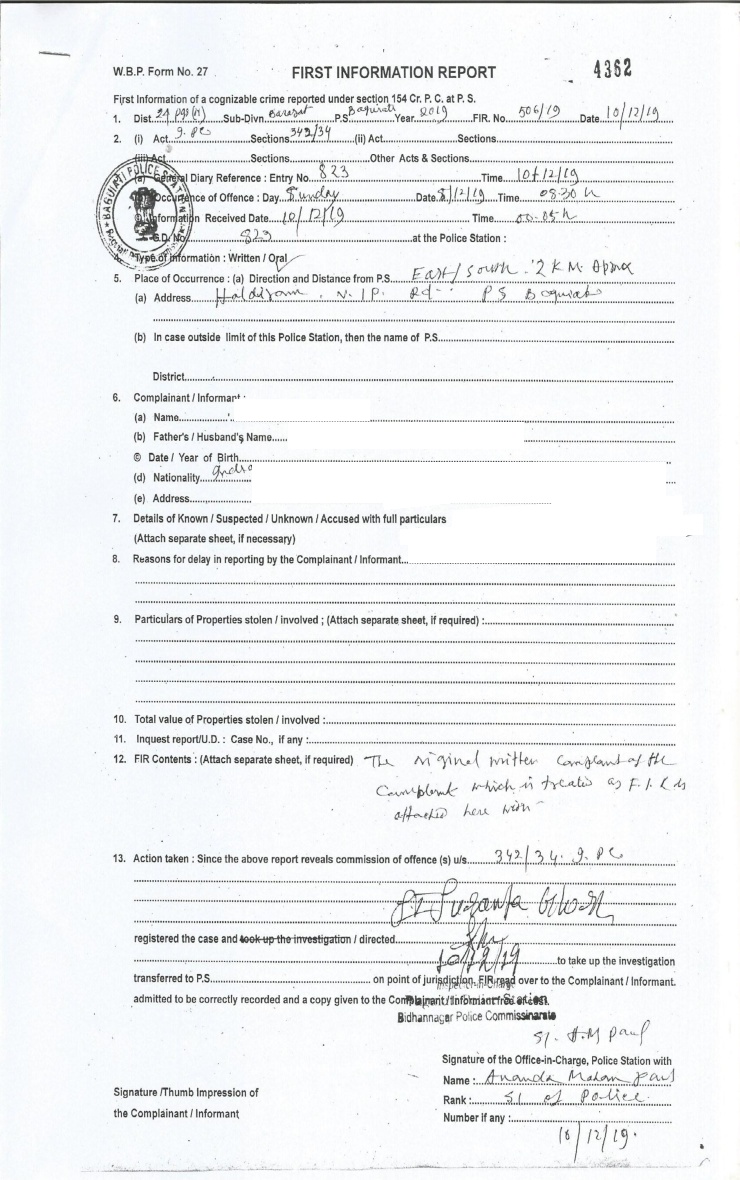 W.B.P. Form No. 27 FIRST INFORMATION REPORT 4362
First Information of a cognizable crime reported under section 154 Cr. P. C. at P. S.
1. Dist. 24 pgs (n) Sub-Divn. Barasat P.S Baguiati Year 2019 FIR. No. 506/19 Date 10/12/19
2. (i) Act I. PC Sections 342/34 (ii) Act Sections
(iii) Act Sections Other Acts & Sections
(a) General Diary Reference : Entry No. 823 Time 10/12/19
Occurence of Offence : Day Sunday Date 8/12/19 Time 08:30 h
© Information Received Date 10/12/19 Time 00.05 h
G.D. No. 823 at the Police Station :
BAGUIATI POLICE STATION
Type of Information : Written / Oral
5. Place of Occurrence : (a) Direction and Distance from P.S. East/South 2 KM. Aprox
(a) Address Haldiram, V.I.P. Rd- PS Baguiati
(b) In case outside limit of this Police Station, then the name of P.S.
District
6. Complainant / Informant
(a) Name
(b) Father's / Husband's Name
© Date / Year of Birth
(d) Nationality
(e) Address
7. Details of Known / Suspected / Unknown / Accused with full particulars
(Attach separate sheet, if necessary)
8. Reasons for delay in reporting by the Complainant / Informant
9. Particulars of Properties stolen / involved ; (Attach separate sheet, if required) :
10. Total value of Properties stolen / involved :
11. Inquest report/U.D. : Case No., if any :
12. FIR Contents : (Attach separate sheet, if required) The original written complaint of the
Complent which is treated as F.I.R is
attached here with
13. Action taken : Since the above report reveals commission of offence (s) u/s 342/34. I. PC
registered the case and took up the investigation / directed
10/12/19 to take up the investigation
transferred to P.S. on point of jurisdiction. FIR read over to the Complainant / Informant.
admitted to be correctly recorded and a copy given to the Complainant / Informant free of cost.
Inspector-in-Charge
Bidhannagar Police Commissinarate
SI. A.M Paul
Signature of the Office-in-Charge, Police Station with
Name : Ananda Mohan Paul
Rank : SI of Police
Number if any :
10/12/19.
Signature /Thumb Impression of
the Complainant / Informant